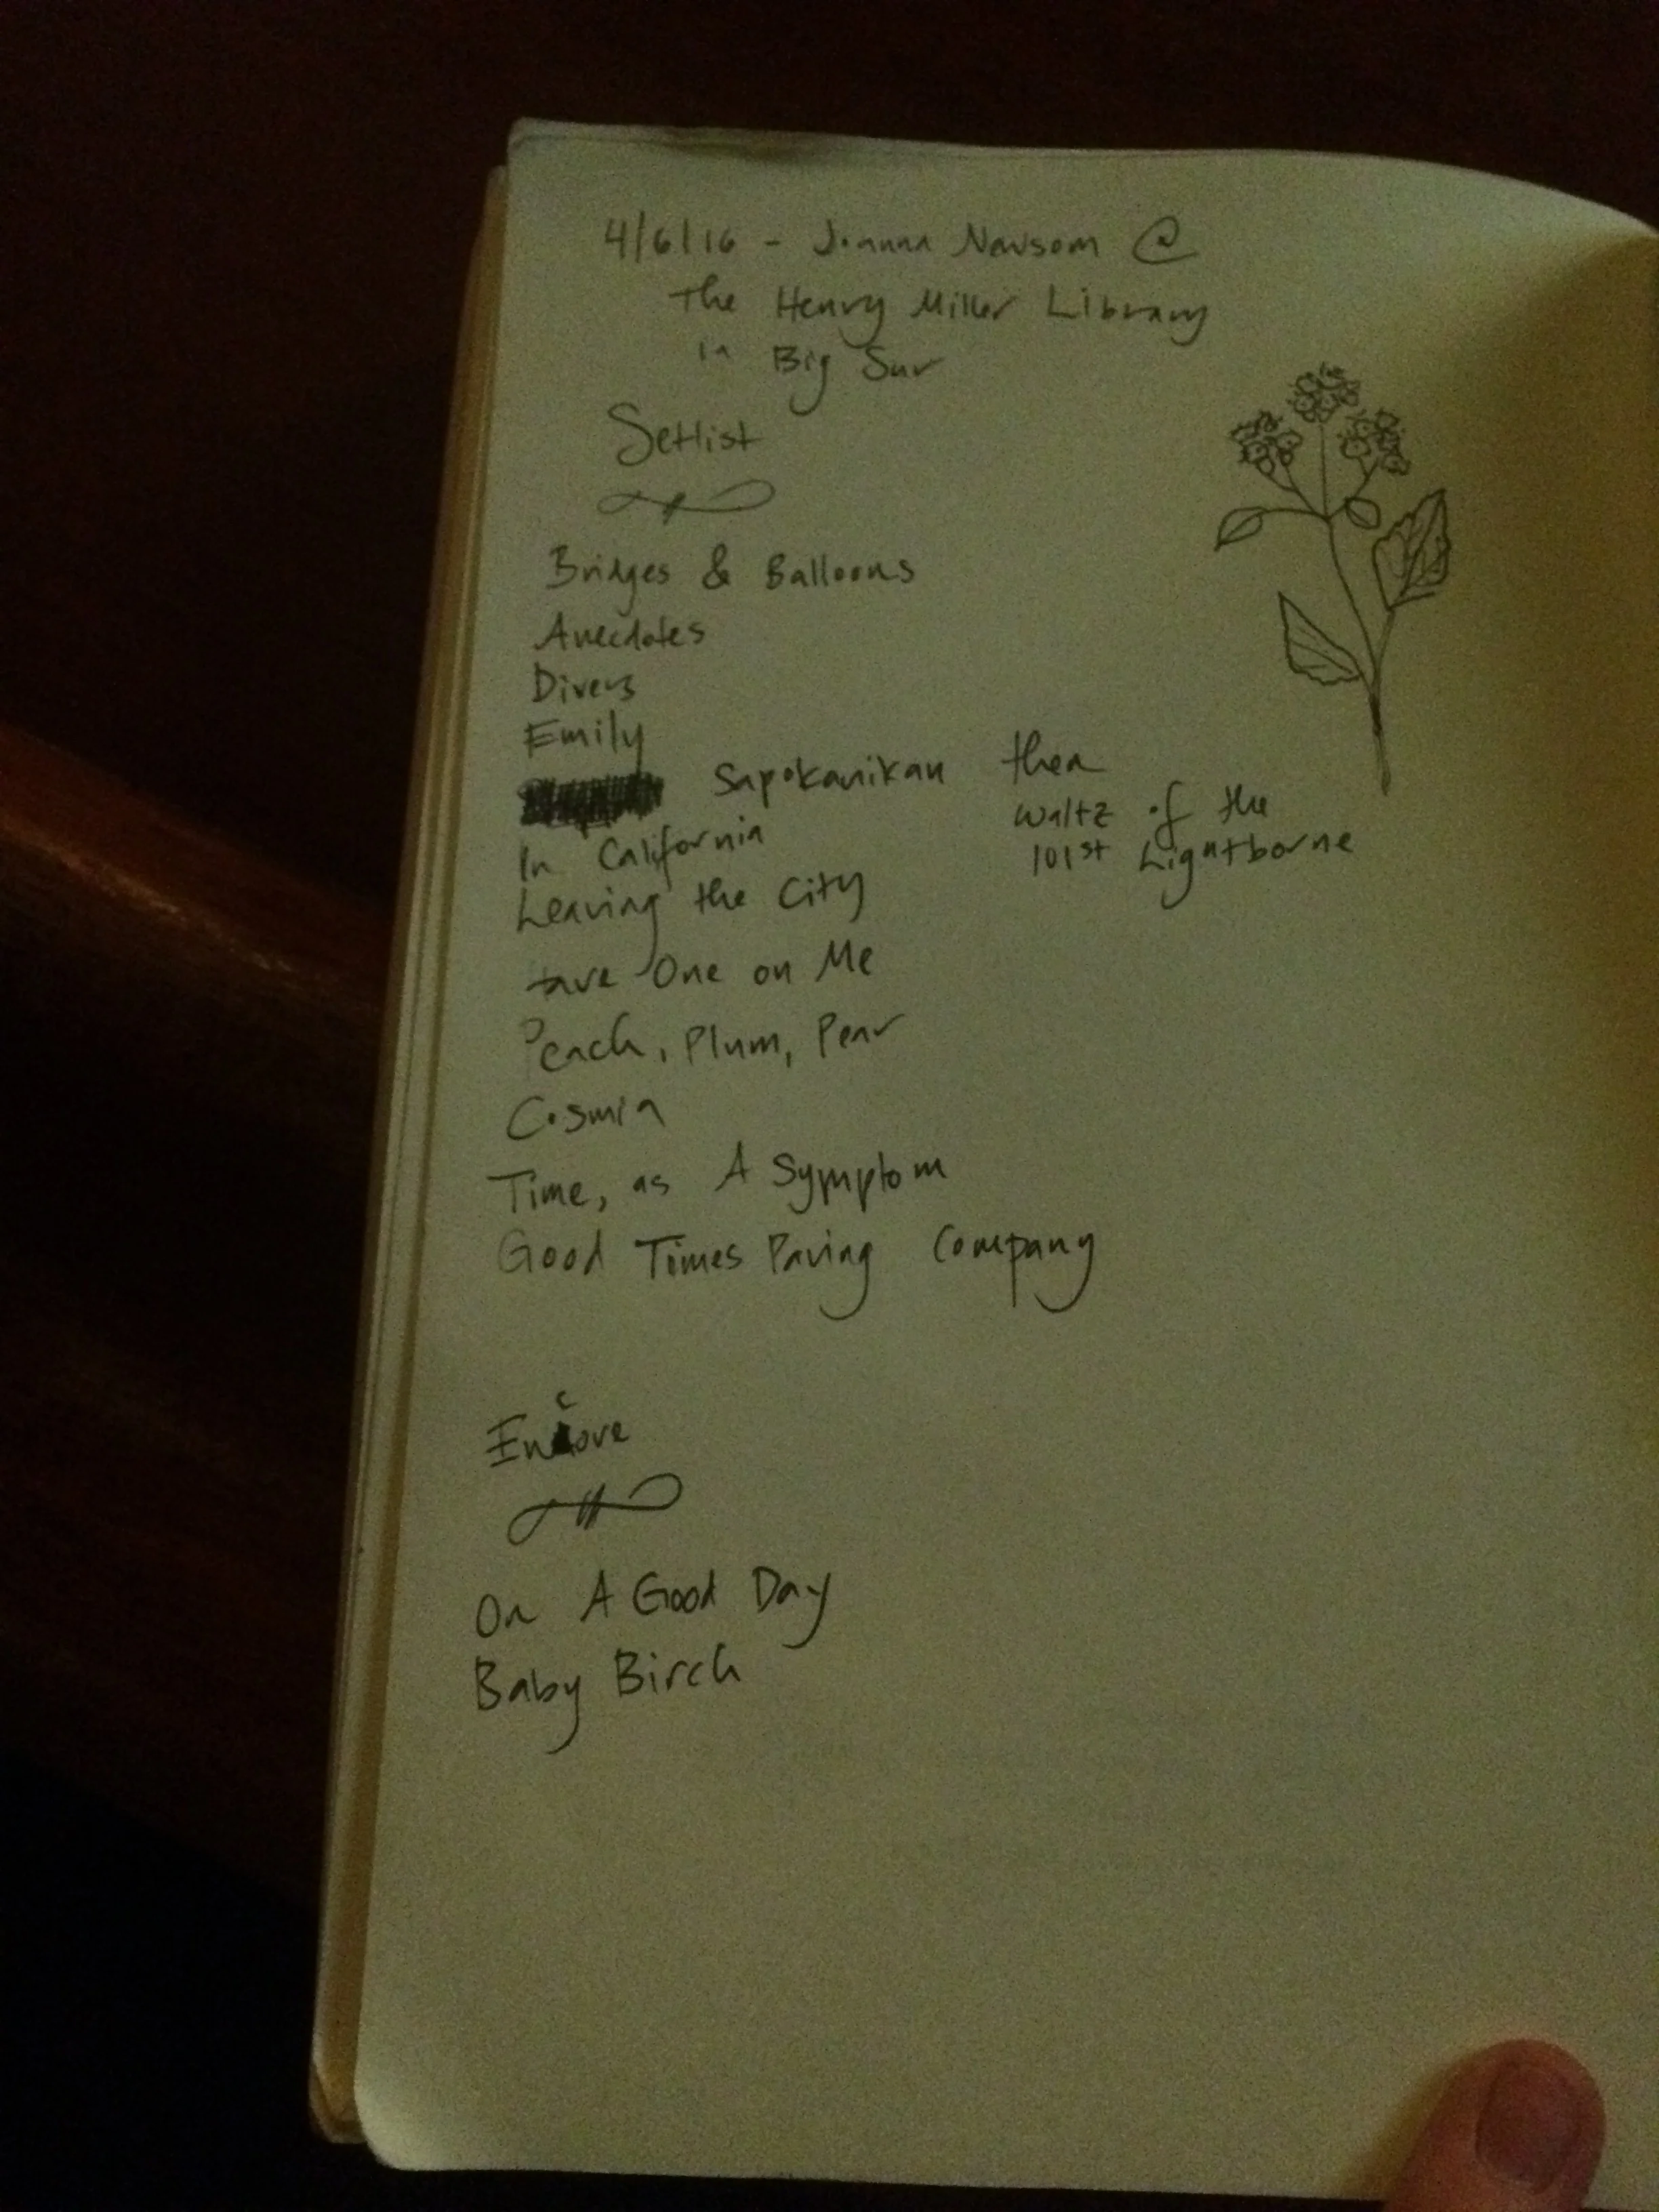 4/6/16 - Joanna Newsom @
The Henry Miller Library
in Big Sur
Setlist
Bridges & Balloons
Anecdotes
Divers
Emily
Sapokanikan then
Waltz of the
101st Lightborne
In California
Leaving the City
Have One on Me
Peach, Plum, Pear
Cosmia
Time, as A Symptom
Good Times Paving Company
Encore
On A Good Day
Baby Birch